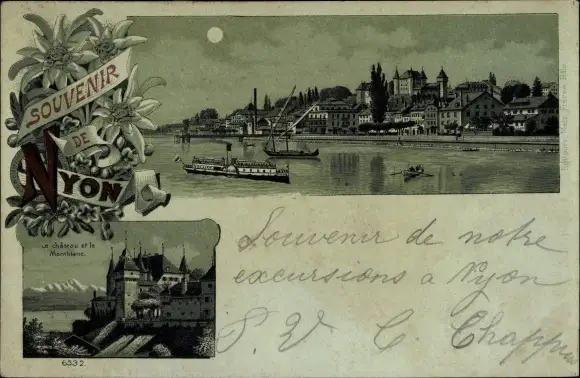 SOUVENIR
DE
NYON
Le château et le
Montblanc.
6532
Souvenir de notre
excursions a Nyon
S. V. C. Chappuis